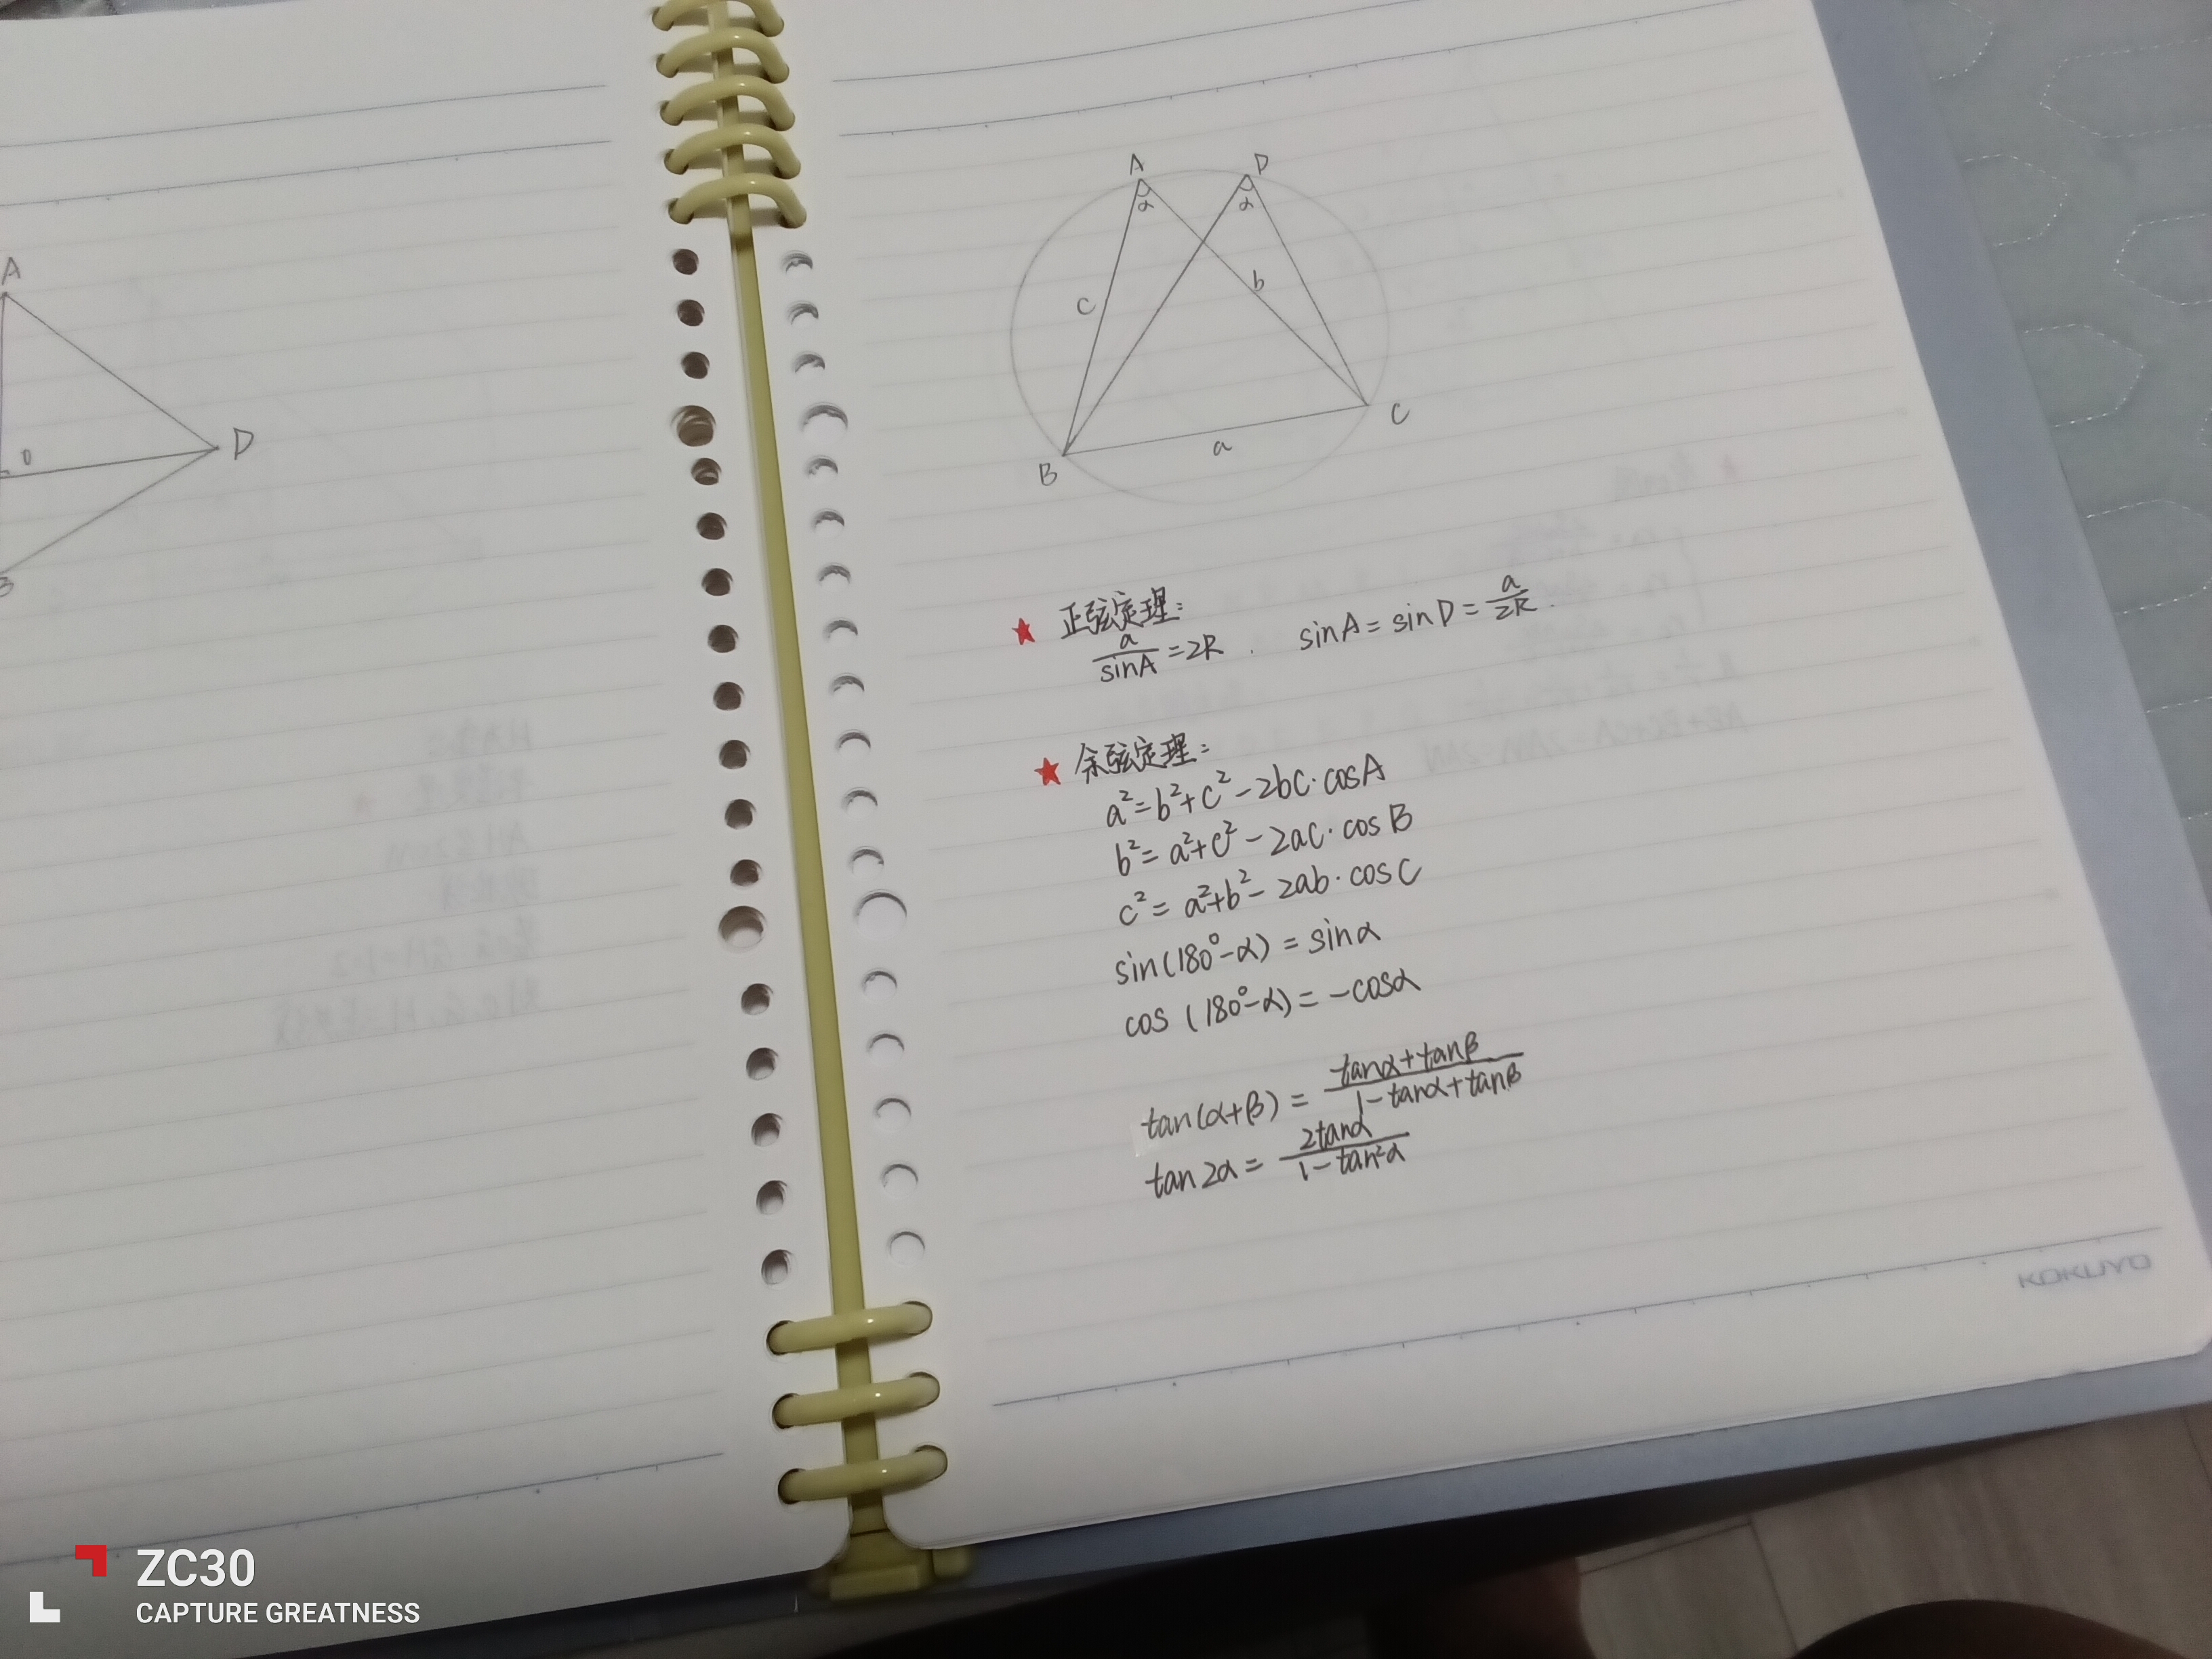 A
D
0
B
A
D
α
α
c
b
B
a
C
★ 正弦定理:
a/sinA = 2R . sinA = sinD = a/2R .
★ 余弦定理:
a² = b² + c² - 2bc · cosA
b² = a² + c² - 2ac · cosB
c² = a² + b² - 2ab · cosC
sin(180° - α) = sinα
cos(180° - α) = -cosα
tan(α+β) = tanα + tanβ / 1 - tanα + tanβ
tan2α = 2tanα / 1 - tan²α
KOKUYO
ZC30
CAPTURE GREATNESS